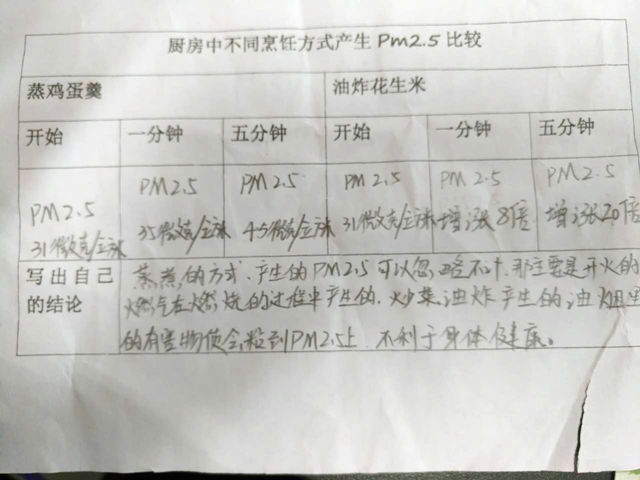 厨房中不同烹饪方式产生Pm2.5比较
蒸鸡蛋羹 油炸花生米
开始 一分钟 五分钟 开始 一分钟 五分钟
PM2.5 PM2.5 PM2.5 PM2.5 PM2.5 PM2.5
31微克/立方米 35微克/立方米 45微克/立方米 31微克/立方米 增涨8倍 增涨20倍
写出自己的结论
蒸煮的方式.产生的PM2.5可以忽略不计.那主要是开火的
燃气在燃烧的过程中产生的.炒菜.油炸产生的油烟里
的有害物质会粘到PM2.5上.不利于身体健康。